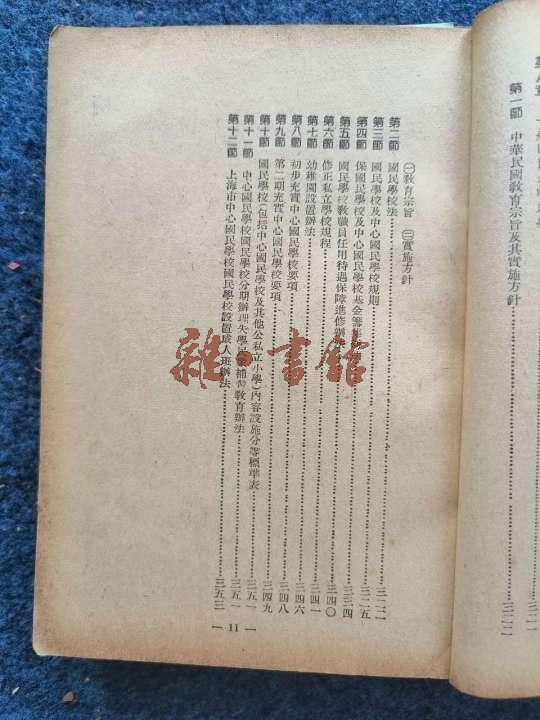 第一節 中華民國教育宗旨及其實施方針 三二二
㈠教育宗旨 ㈡實施方針
第二節 國民學校法 三二二
第三節 國民學校及中心國民學校規則 三二五
第四節 保國民學校及中心國民學校基金籌集
第五節 國民學校教職員任用待遇保障進修辦法 三三四
第六節 修正私立學校規程 三四〇
第七節 幼稚園設置辦法 三四一
第八節 初步充實中心國民學校要項 三四六
第九節 第二期充實中心國民學校要項 三四八
第十節 國民學校(包括中心國民學校及其他公私立小學)內容設施分等標準表 三四九
第十一節 中心國民學校國民學校分期辦理失學民眾補習教育辦法 三五一
第十二節 上海市中心國民學校國民學校設置成人班辦法 三五三
— 11 —
雜書館